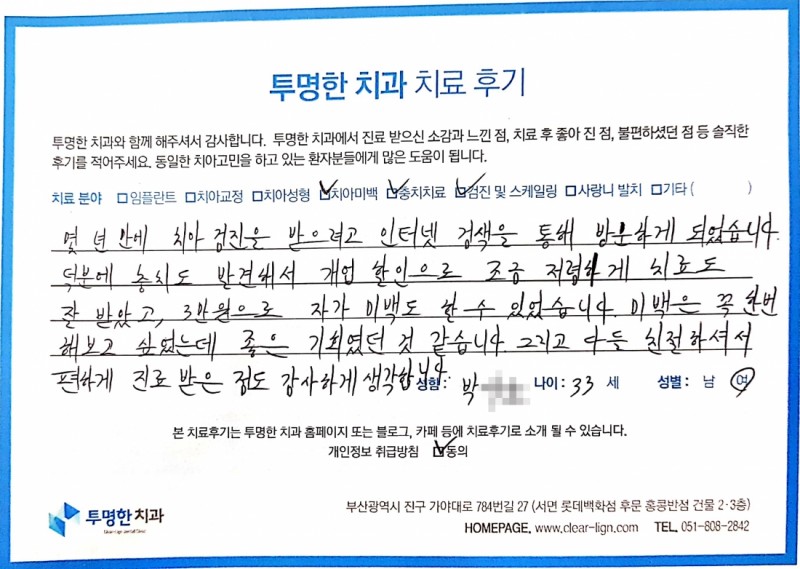 투명한 치과 치료 후기
투명한 치과와 함께 해주셔서 감사합니다. 투명한 치과에서 진료 받으신 소감과 느낀 점, 치료 후 좋아 진 점, 불편하셨던 점 등 솔직한
후기를 적어주세요. 동일한 치아고민을 하고 있는 환자분들에게 많은 도움이 됩니다.
치료 분야 □임플란트 □치아교정 □치아성형 ☑치아미백 ☑충치치료 ☑검진 및 스케일링 □사랑니 발치 □기타 ( )
몇 년 만에 치아 검진을 받으려고 인터넷 검색을 통해 방문하게 되었습니다.
덕분에 충치도 발견해서 개업 할인으로 조금 저렴하게 치료도
잘 받았고, 3만원으로 자가 미백도 할 수 있었습니다. 미백은 꼭 한번
해보고 싶었는데 좋은 기회였던 것 같습니다. 그리고 다들 친절하셔서
편하게 진료 받은 점도 감사하게 생각합니다.
성함: 박 나이: 33 세 성별: 남 여
본 치료후기는 투명한 치과 홈페이지 또는 블로그, 카페 등에 치료후기로 소개 될 수 있습니다.
개인정보 취급방침 ☑동의
투명한 치과
부산광역시 진구 가야대로 784번길 27 (서면 롯데백학점 후문 홍콩반점 건물 2·3층)
HOMEPAGE. www.clear-lign.com TEL. 051-808-2842